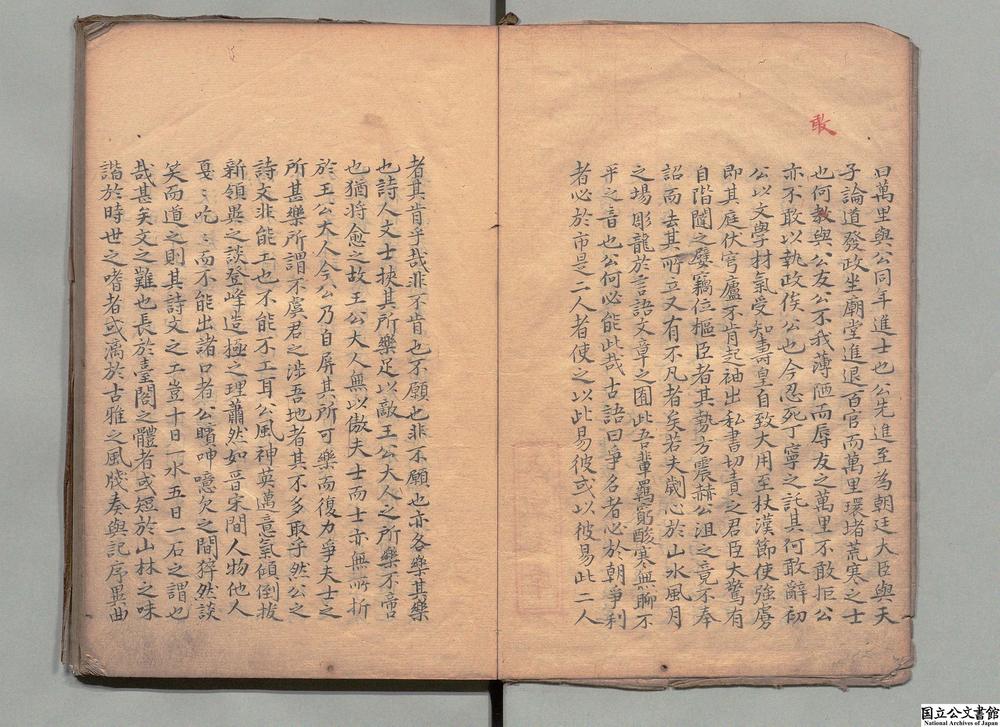 敢
曰萬里與公同年進士也公先進至為朝廷大臣與天
子論道發政坐廟堂進退百官而萬里環堵荒寒之士
也何敎與公友公不我薄陋而辱友之萬里不敢拒公
亦不敢以執政俟公也今忍死丁寧之託其何敢辭初
公以文學材氣受知壽皇自致大用至杖漢節使強虜
即其庭伏穹廬不肯起袖出私書切責之君臣大驚有
自階闥之嬖竊位樞臣者其勢方震赫公沮之竟不奉
詔而去其所立又有不凡者矣若夫歲心於山水風月
之場彫龍於言語文章之囿此吾輩羈窮酸寒無聊不
乎之音也公何必能此哉古語曰爭名者必於朝爭利
者必於市是二人者使之以此易彼或以彼易此二人
者其肯乎哉非不肯也不願也非不願也亦各樂其樂
也詩人文士挾其所樂足以敵王公大人之所樂不啻
也猶將愈之故王公大人無以傲夫士而士亦無所折
於王公大人今公乃自屏其所可樂而復力爭夫士之
所甚樂所謂不虞君之涉吾地者其不多取乎然公之
詩文非能工也不能不工耳公風神英邁意氣傾倒拔
新領異之談登峰造極之理蕭然如晉宋間人物他人
戞〻吃〻而不能出諸口者公噫呻噫欠之間猝然談
笑而道之則其詩文之工豈十日一水五日一石之謂也
哉甚矣文之難也長於臺閣之體者或短於山林之味
諧於時世之嗜者或漓於古雅之風牋奏與記序異曲
国立公文書館
National Archives of Japan